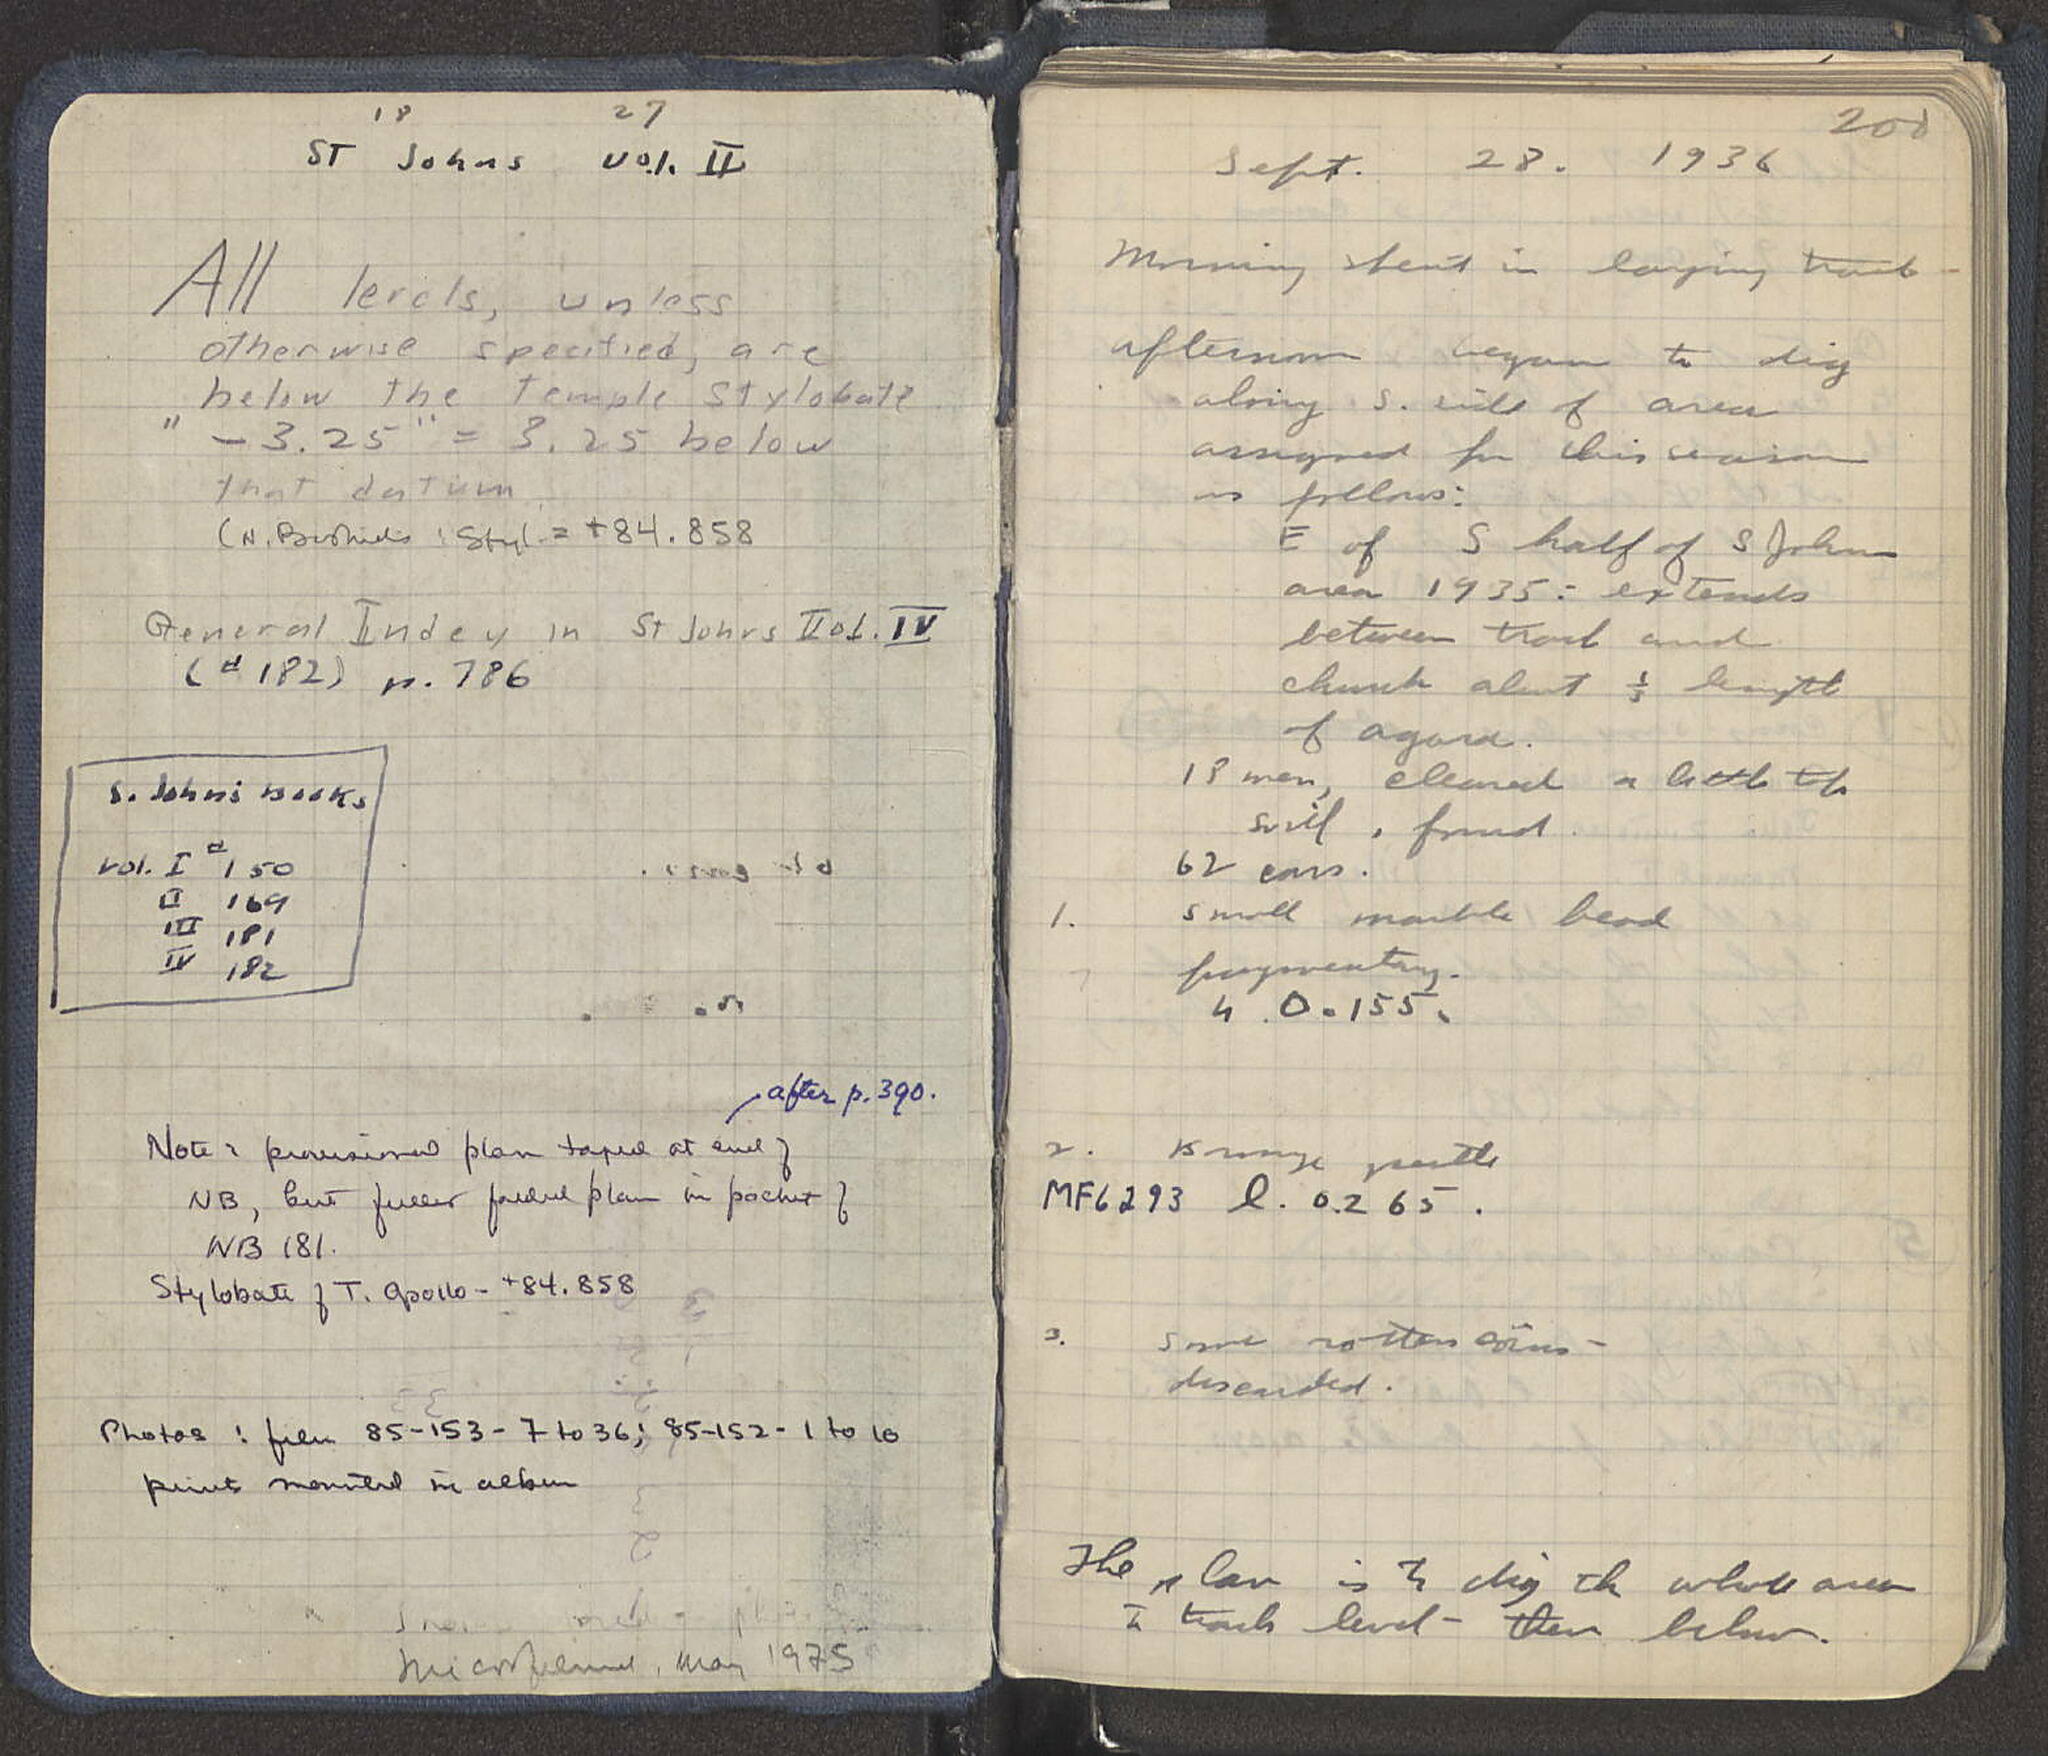 18 27
ST Johns Vol. II
All levels, unless
otherwise specified, are
below the Temple Stylobate
" -3.25" = 3.25 below
that datum
(N. : Styl. = +84.858
General Index in St Johns Vol. IV
(# 182) p. 786
S. Johns Books
Vol. I # 150
II 169
III 181
IV 182
after p. 390.
Note: provisional plan taped at end of
NB, but fuller folded plan in pocket of
NB 181.
Stylobate of T. Apollo - +84.858
Photos: film 85-153-7 to 36; 85-152-1 to 10
prints mounted in album
Microfilmed, May 1975
200
Sept. 28. 1936
Morning spent in laying track -
afternoon began to dig
along S. side of area
assigned for this season
as follows:
E of S half of S John
area 1935: extends
between track and
church about 1/3 length
of agora.
18 men, cleared a little top
soil, found.
62 cars.
1. small marble head
fragmentary.
h. 0.155.
2. Bronze
MF6293 l. 0.265.
3. Some rotten coins -
discarded.
The plan is to dig the whole area
to track level - then below.